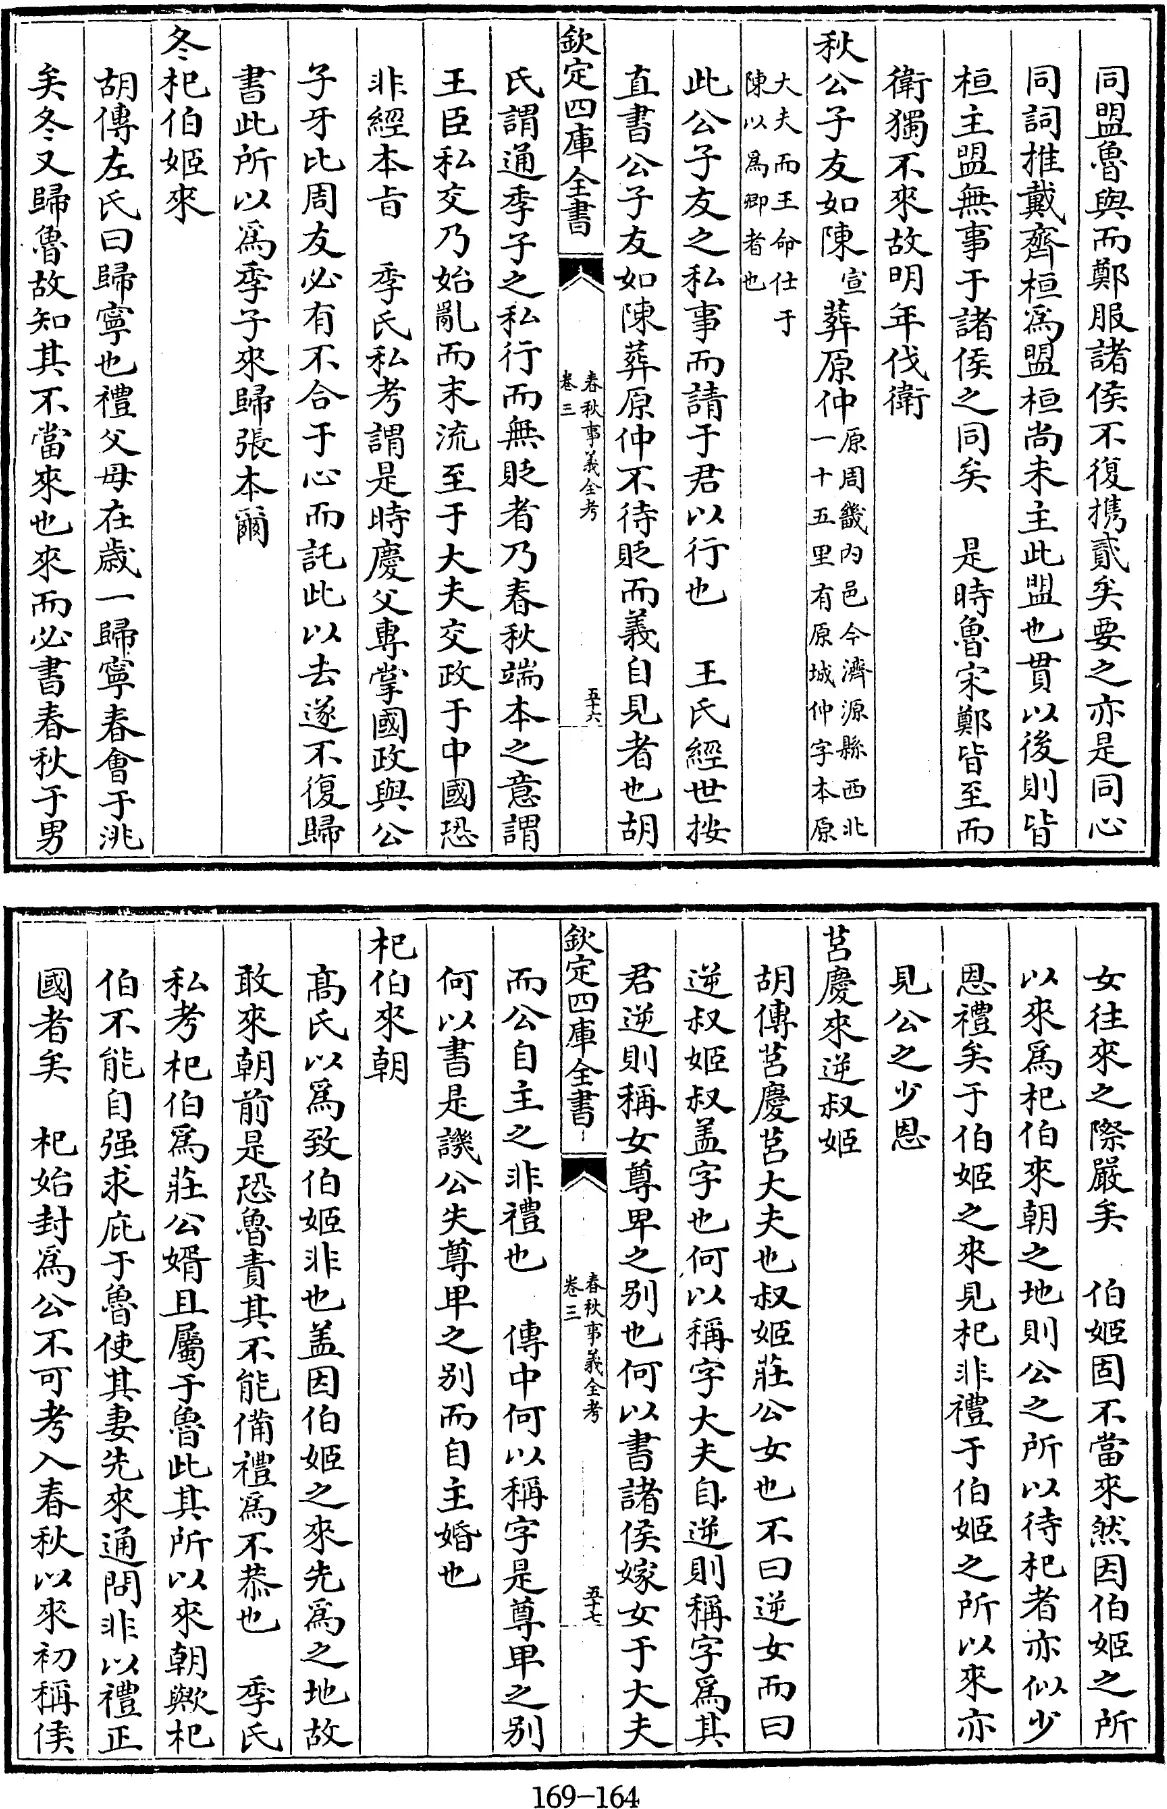 同盟魯與而鄭服諸侯不復攜貳矣要之亦是同心
同詞推戴齊桓為盟桓尚未主此盟也貫以後則皆
桓主盟無事于諸侯之同矣　是時魯宋鄭皆至而
衛獨不來故明年伐衛
秋公子友如陳宣葬原仲原周畿內邑今濟源縣西北一十五里有原城仲字本原
大夫而王命仕于陳以為卿者也
此公子友之私事而請于君以行也　王氏經世按
直書公子友如陳葬原仲不待貶而義自見者也胡
欽定四庫全書
春秋事義全考
卷三
五十六
氏謂通季子之私行而無貶者乃春秋端本之意謂
王臣私交乃始亂而末流至于大夫交政于中國恐
非經本旨　季氏私考謂是時慶父專掌國政與公
子牙比周友必有不合于心而託此以去遂不復歸
書此所以為季子來歸張本爾
冬杞伯姬來
胡傳左氏曰歸寧也禮父母在歲一歸寧春會于洮
矣冬又歸魯故知其不當來也來而必書春秋于男
女往來之際嚴矣　伯姬固不當來然因伯姬之所
以來為杞伯來朝之地則公之所以待杞者亦似少
恩禮矣于伯姬之來見杞非禮于伯姬之所以來亦
見公之少恩
莒慶來逆叔姬
胡傳莒慶莒大夫也叔姬莊公女也不曰逆女而曰
逆叔姬叔盖字也何以稱字大夫自逆則稱字為其
君逆則稱女尊卑之别也何以書諸侯嫁女于大夫
欽定四庫全書
春秋事義全考
卷三
五十七
而公自主之非禮也　傳中何以稱字是尊卑之别
何以書是譏公失尊卑之别而自主婚也
杞伯來朝
高氏以為致伯姬非也盖因伯姬之來先為之地故
敢來朝前是恐魯責其不能備禮為不恭也　季氏
私考杞伯為莊公婿且屬于魯此其所以來朝歟杞
伯不能自强求庇于魯使其妻先來通問非以禮正
國者矣　杞始封為公不可考入春秋以來初稱侯
169-164